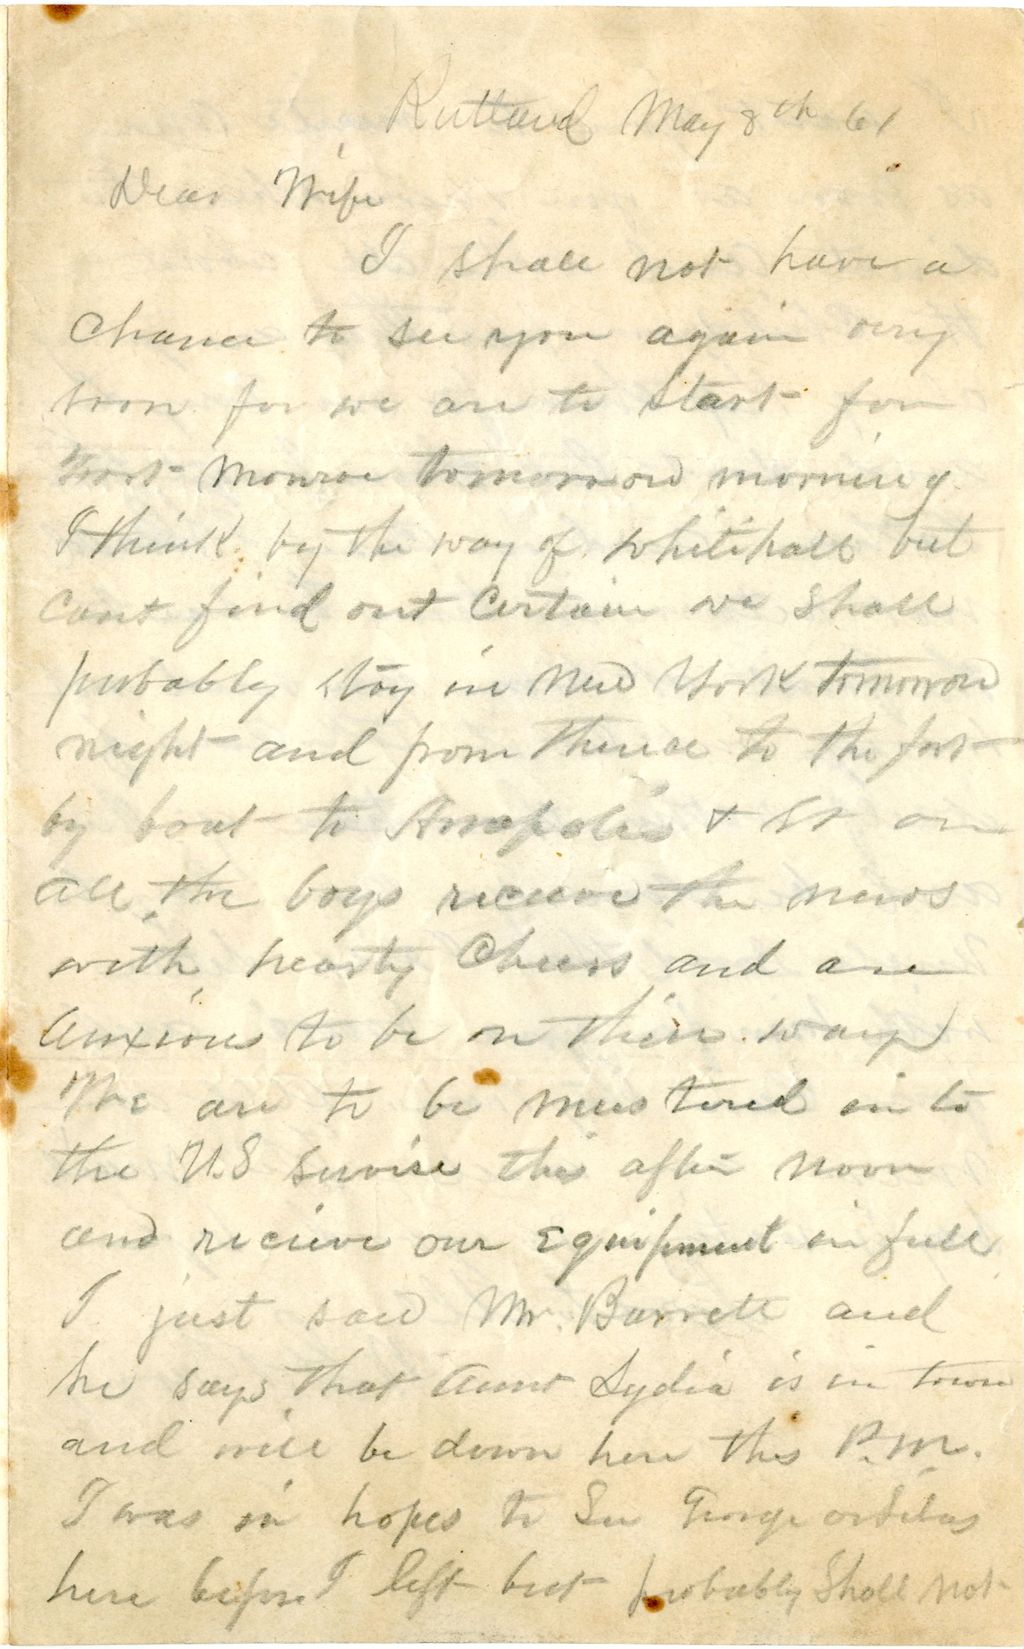 Rutland May 8th 61
Dear Wife
I shall not have a
chance to see you again very
soon for we are to start for
Fort Monroe tomorrow morning
I think by the way of Whitihall but
cant find out certain we shall
probably stay in New York tomorrow
night and from thence to the fort
by boat to Anapolis &
all the boys recieve the news
with hearty Cheers and are
anxious to be on thier way
We are to be mustered in to
the U.S servise this after noon
and recieve our Equipment in full
I just saw Mr. Barrett and
he says that Aunt Lydia is in town
and will be down here this P.M.
I was in hopes to See George or Silas
here before I left but probably Shall not